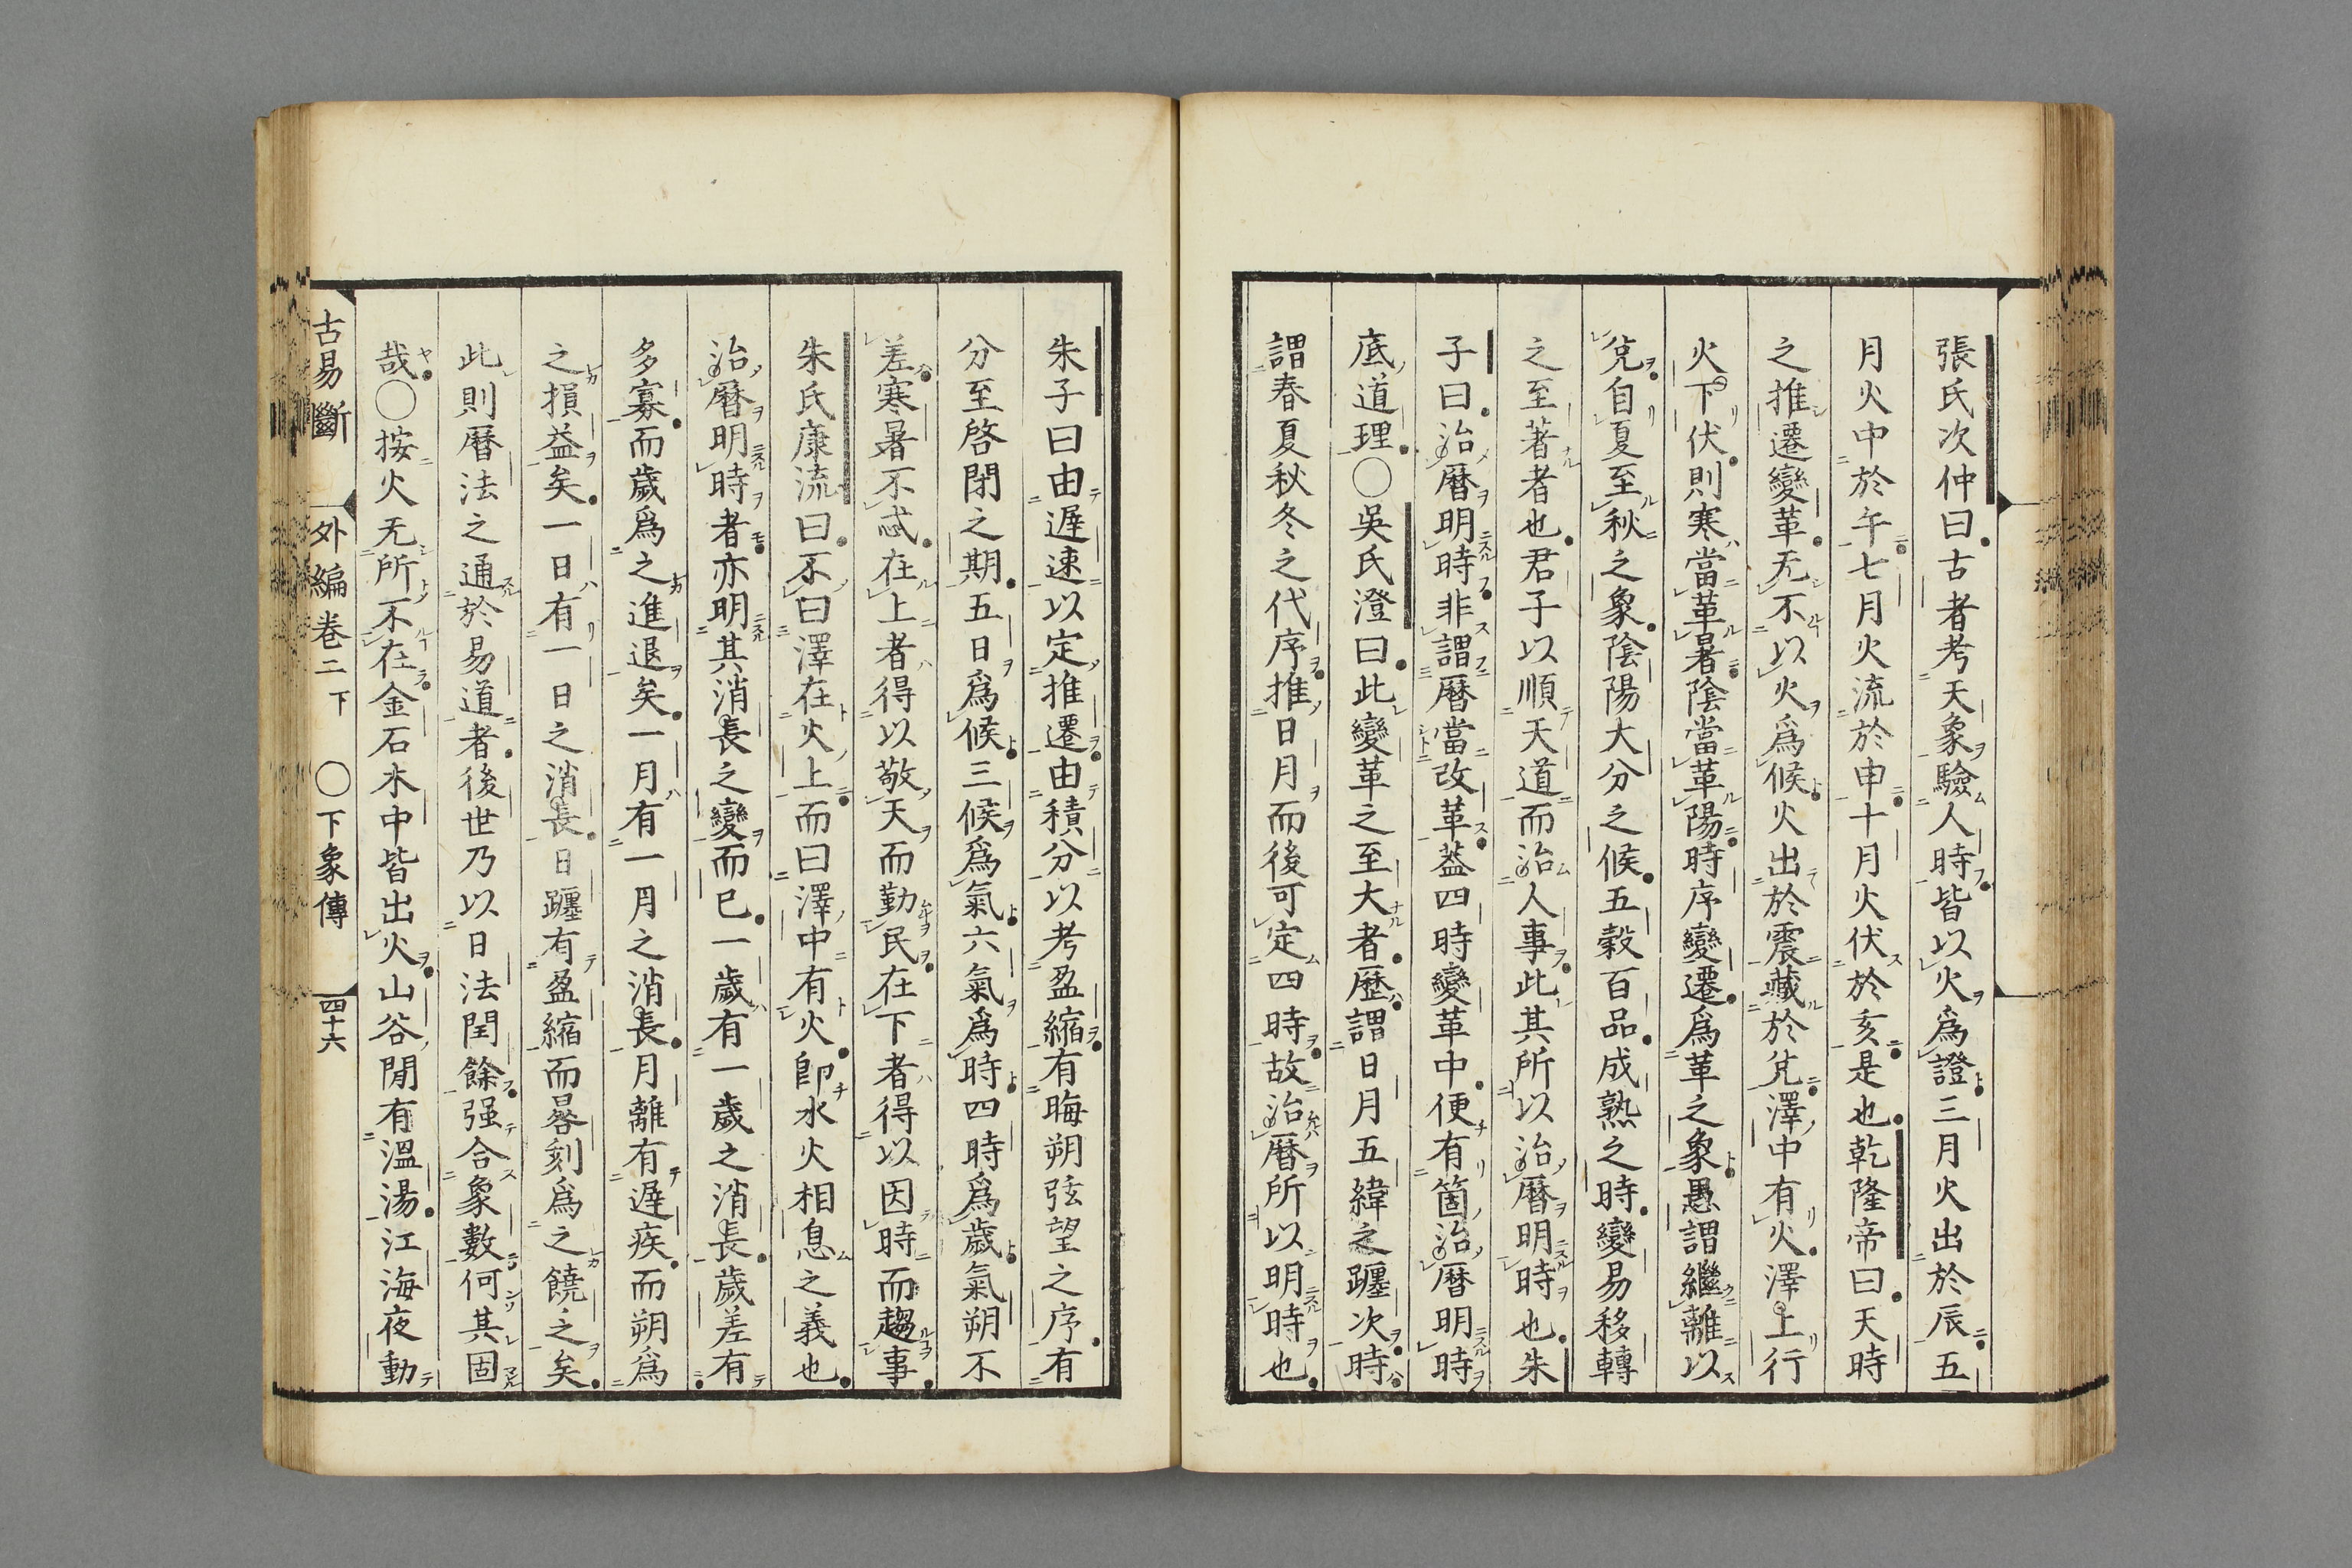 張氏次仲曰古者考天象驗人時皆以火爲證三月火出於辰五
月火中於午七月火流於申十月火伏於亥是也乾隆帝曰天時
之推遷變革无不以火爲候火出於震藏於兌澤中有火澤上行
火下伏則寒當革暑陰當革陽時序變遷爲革之象愚謂繼離以
兌自夏至秋之象陰陽大分之候五穀百品成熟之時變易移轉
之至著者也君子以順天道而治人事此其所以治曆明時也朱
子曰治曆明時非謂曆當改革葢四時變革中便有箇治曆明時
底道理○吳氏澄曰此變革之至大者歷謂日月五緯之躔次時
謂春夏秋冬之代序推日月而後可定四時故治曆所以明時也
朱子曰由遲速以定推遷由積分以考盈縮有晦朔弦望之序有
分至啓閉之期五日爲候三候爲氣六氣爲時四時爲歲氣朔不
差寒暑不忒在上者得以敬天而勤民在下者得以因時而趨事
朱氏康流曰不曰澤在火上而曰澤中有火卽水火相息之義也
治曆明時者亦明其消長之變而已一歲有一歲之消長歲差有
多寡而歲爲之進退矣一月有一月之消長月離有遲疾而朔爲
之損益矣一日有一日之消長日躔有盈縮而晷刻爲之饒之矣
此則曆法之通於易道者後世乃以日法閏餘强合象數何其固
哉○按火无所不在金石木中皆出火山谷閒有溫湯江海夜動
古易斷 外編卷二下 ○下象傳 四十六